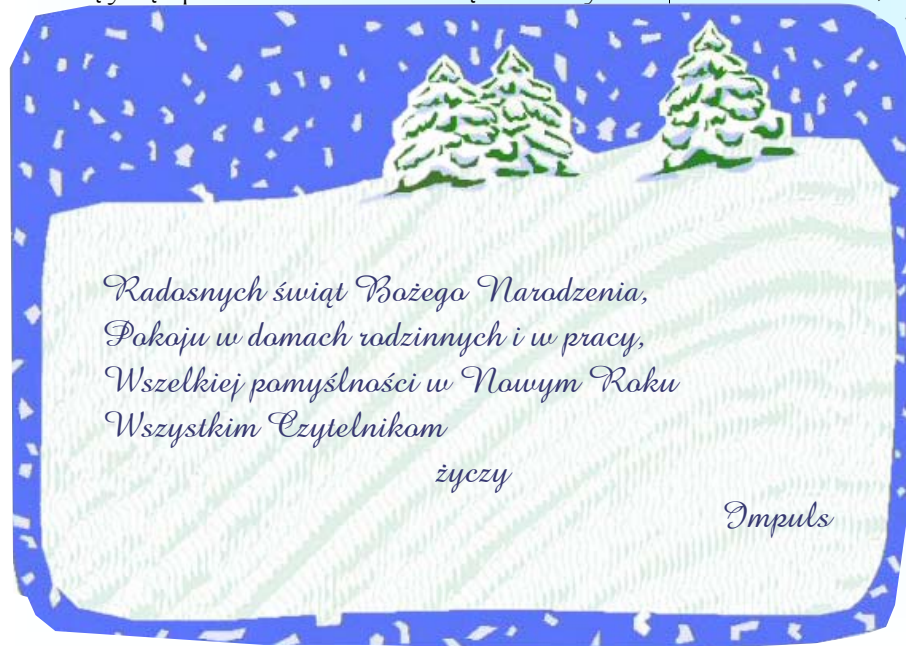 Radosnych świąt Bożego Narodzenia,
Pokoju w domach rodzinnych i w pracy,
Wszelkiej pomyślności w Nowym Roku
Wszystkim Czytelnikom
życzy
Impuls